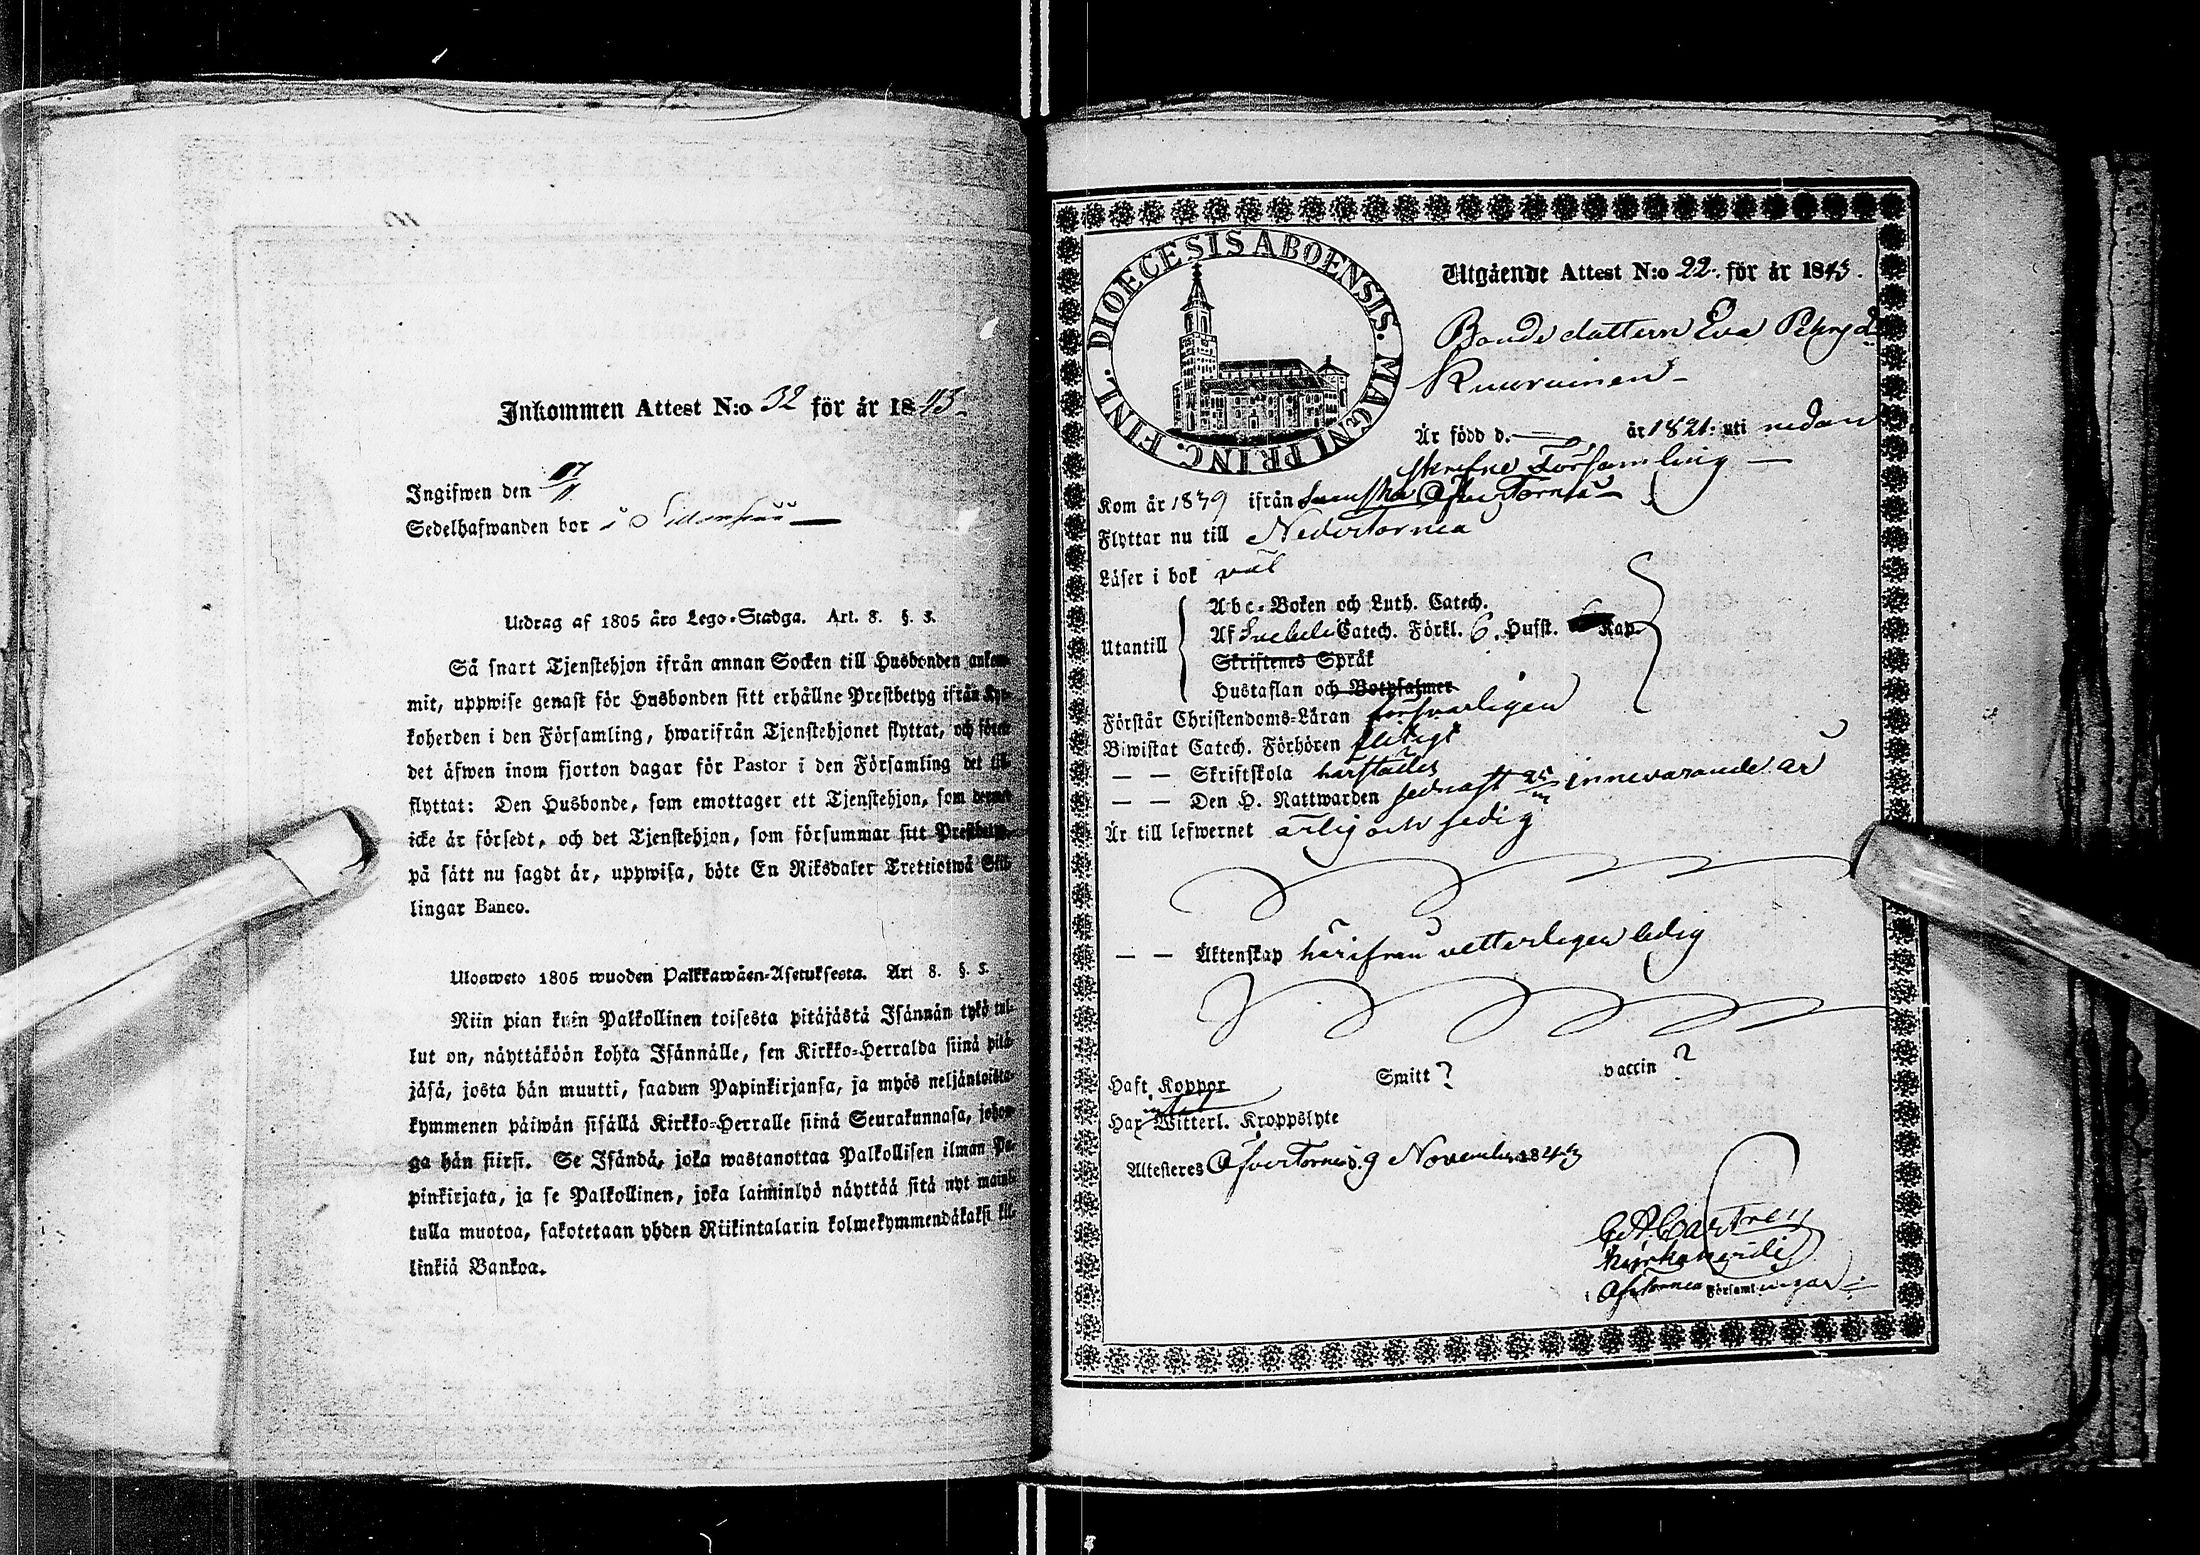 Inkommen Attest N:o 32 för år 1843.
Ingifwen den 17/11
Sedelhafwanden bor i
Utdrag af 1805 års Lego-Stadga. Art. 8. §. 3.
Så snart Tjenstehjon ifrån annan Socken till Husbonden ankom-
mit, uppwise genast för Husbonden sitt erhållne Prestbetyg ifrån Kyr-
koherden i den Församling, hwarifrån Tjenstehjonet flyttat, och förete
det äfwen inom fjorton dagar för Pastor i den Församling det till-
flyttat: Den Husbonde, som emottager ett Tjenstehjon, som dermed
icke är försedt, och det Tjenstehjon, som försummar sitt Prestbetyg,
på sätt nu sagdt är, uppwisa, böte En Riksdaler Trettiotwå Skil-
lingar Banco.
Ulosweto 1805 wuoden Palkkawäen-Asetuksesta. Art 8. §. 3.
Niin pian kuin Palkollinen toisesta pitäjästä Isännän tykö tul-
lut on, näyttäköön kohta Isännälle, sen Kirkko-Herralda siinä pitä-
jäsä, josta hän muutti, saadun Papinkirjansa, ja myös neljäntoista-
kymmenen päiwän sisällä Kirkko-Herralle siinä Seurakunnasa, johon-
ga hän siirsi. Se Isändä, joka wastanottaa Palkollisen ilman Pa-
pinkirjata, ja se Palkollinen, joka laiminlyö näyttää sitä nyt maini-
tulla muotoa, sakotetaan yhden Riikintalarin kolmekymmendäkaksi kil-
linkiä Bankoa.
DIOECESIS ABOENSIS. MAGNI PRINC. FINL.
Utgående Attest N:o 22. för år 1843.
Bondedottern Eva Pehrsd:r
Kuuruinen
Är född d. — år 1821. uti nedan
skrifne Församling —
Kom år 1839 ifrån Svenska Öfver Torneå
Flyttar nu till Neder Tornea
Läser i bok väl
Utantill
Abc-Boken och Luth. Catech.
Af Svebeli Catech. Förkl. 6. Hufst. Kap.
Skriftenes Språk
Hustaflan och Botpsalmer
Förstår Christendoms-Läran försvarligen
Biwistat Catech. Förhören flitigt
— — Skriftskola härstädes
— — Den H. Nattwarden sednast innevarande år
Är till lefwernet ärlig och sedig
— — Äktenskap härifrån vetterligen ledig
Haft Koppor Smitt? vaccin?
intet
Har Witterl. Kroppslyte
Attesteres Öfver Torneå d. 9 November 1843
Castren
Kyrkoherde
i Öf. Tornea Församlingar